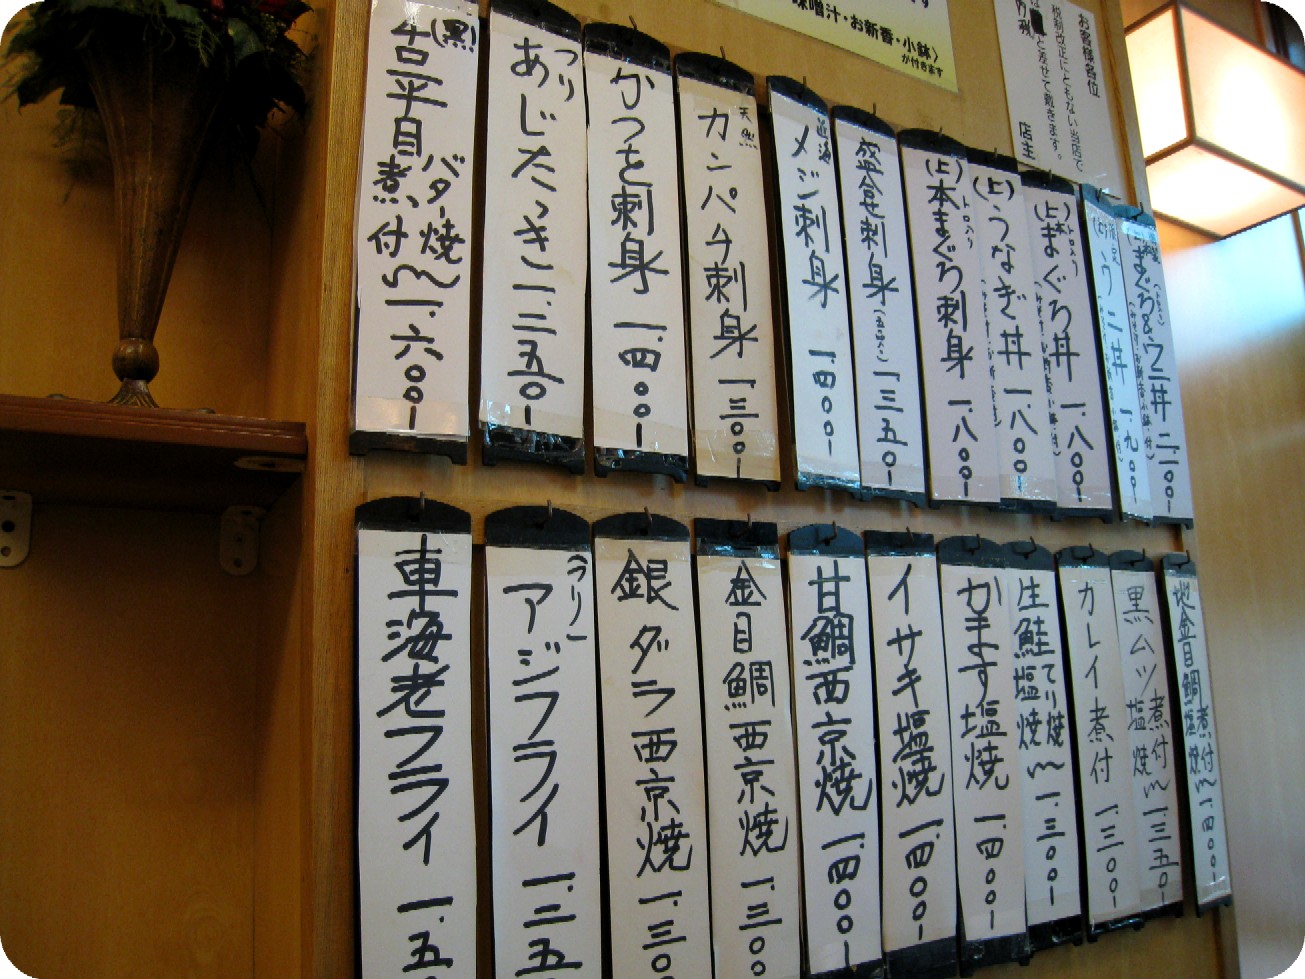 味噌汁・お新香・小鉢〉
が付きます
お客様各位
税制改正にともない当店で
は
内税
と させて戴きます。
店主
(上)うに丼 一.九〇〇
まぐろ&ウニ丼 二.一〇〇
(上)本まぐろ丼 一.八〇〇
トロ入り
(上)うなぎ丼 一.八〇〇
(上)本まぐろ刺身 一.八〇〇
トロ入り
盛合刺身(五品入)一.三五〇
近海
メジ刺身 一.四〇〇
天然
カンパチ刺身 一.三〇〇
かつを刺身 一.四〇〇
つり
あじたゝき 一.二五〇
(黒)
舌平目 バター焼 煮付 〜 一.六〇〇
地金目鯛 煮付 塩焼 〜 一.四〇〇
黒ムツ 煮付 塩焼 〜 一.三五〇
カレイ煮付 一.三〇〇
生鮭 てり焼 塩焼 〜 一.三〇〇
かます塩焼 一.四〇〇
イサキ塩焼 一.四〇〇
甘鯛西京焼 一.四〇〇
金目鯛西京焼 一.三〇〇
銀ダラ西京焼 一.三〇
(つり)
アジフライ 一.二五
車海老フライ 一.五